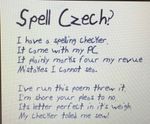 Spell Czech?
I have a spelling checker.
It came with my PC.
It plainly marks four my revue
Mistakes I cannot sea.
I've run this poem threw it.
I'm shore your pleas to no.
Its letter perfect in it's weigh
My checker toled me sew!